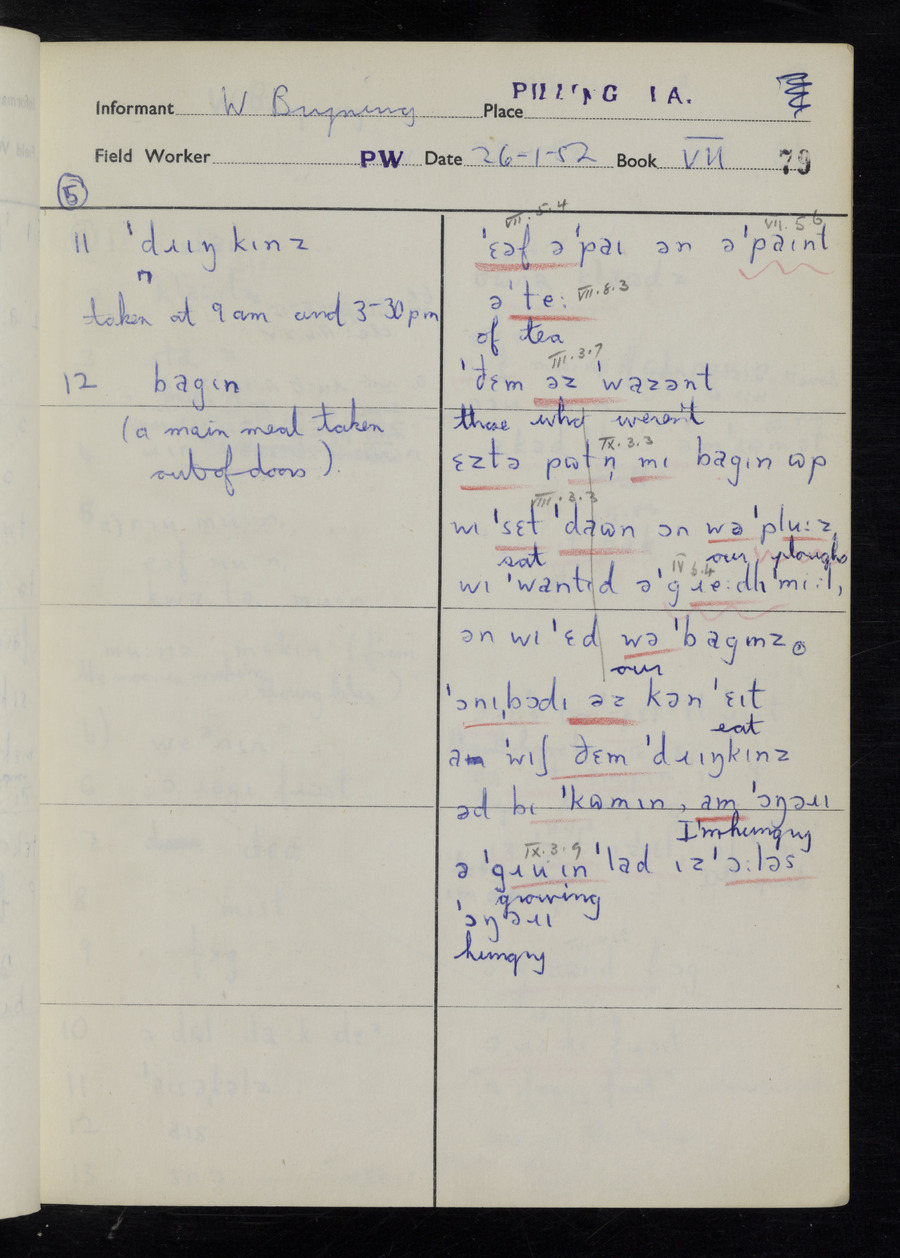 Informant W Bryning Place PILLING LA.
Field Worker PW Date 26-1-52 Book VII 79
5
11 ˈdɹɪŋkɪnz
n
taken at 9 am and 3-30 pm
12 bagin
(a main meal taken
out of doors).
VII.5.4 VII.5.6
ˈɛəf əˈpaɪ ən əˈpaɪnt
əˈteː VII.8.3
of tea
III.3.7
ˈðɛm əz ˈwazənt
those who weren't
IX.3.3
ɛztə pɷtn̩ mɪ bagɪn ɷp
VIII.3.3
wɪ ˈsɛt ˈdaɷn ɔn wəˈpluːz
sat our ploughs
IV 6.4
wɪ ˈwantɪd əˈgɹeːdlɪˈmiːl,
ən wɪ ˈɛd wəˈbagɪnz
our
ˈɔnɪˌbɔdɪ əz kənˈɛɪt
eat
a ˈwɪʃ ðɛm ˈdɹɪŋkɪnz
əd bɪ ˈkɷmɪn, am ˈɔŋəɹɪ
I'm hungry
IX.3.9
əˈgɹuˑɪnˈlad ɪzˈɔːləs
growing
ˈɔŋəɹɪ
hungry